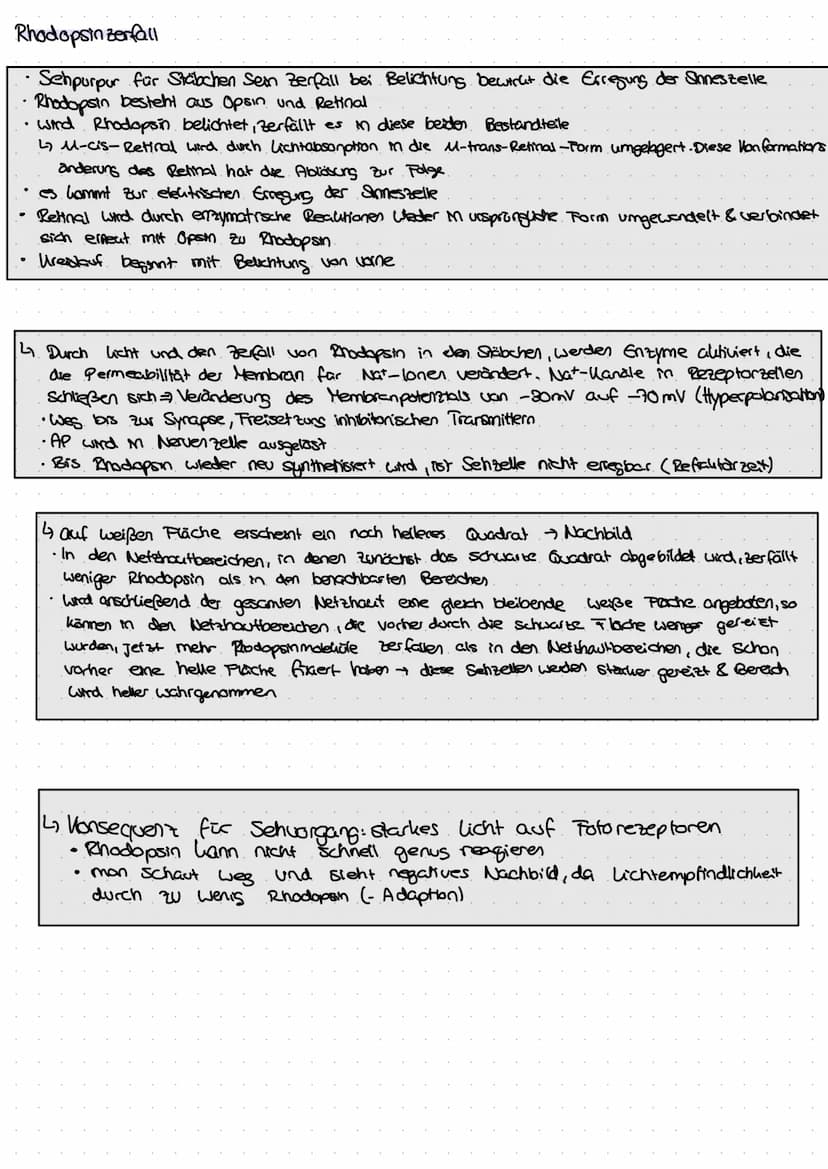 Rhodopsinzerfall
· Sehpurpur für Stäbchen Sein Zerfall bei Belichtung bewirkt die Erregung der Sinneszelle
· Rhodopsin besteht aus Opsin und Retinal
· wird Rhodopsin belichtet, zerfällt es in diese beiden Bestandteile
↳ 11-cis-Retinal wird durch Lichtabsorption in die 11-trans-Retinal-Form umgelagert. Diese Konformations
änderung des Retinal hat die Ablösung zur Folge
· es kommt zur elektrischen Erregung der Sinneszelle
· Retinal wird durch enzymatische Reaktionen wieder in ursprüngliche Form umgewandelt & verbindet
sich erneut mit Opsin zu Rhodopsin
· Kreislauf beginnt mit Belichtung von vorne
↳ Durch Licht und den Zerfall von Rhodopsin in den Stäbchen, werden Enzyme aktiviert, die
die Permeabilität der Membran für Na+-Ionen verändert. Na+-Kanäle in Rezeptorzellen
schließen sich ⇒ Veränderung des Membranpotenzials von -30mV auf -70mV (Hyperpolarisation)
· Weg bis zur Synapse, Freisetzung inhibitorischen Transmittern
· AP wird in Nervenzelle ausgelöst
· Bis Rhodopsin wieder neu synthetisiert wird, ist Sehzelle nicht erregbar (Refraktärzeit)
↳ auf weißen Fläche erscheint ein noch helleres Quadrat → Nachbild
· In den Netzhautbereichen, in denen zunächst das schwarze Quadrat abgebildet wird, zerfällt
weniger Rhodopsin als in den benachbarten Bereichen
· Wird anschließend der gesamten Netzhaut eine gleich bleibende weiße Fläche angeboten, so
können in den Netzhautbereichen, die vorher durch die schwarze Fläche weniger gereizt
wurden, jetzt mehr Rhodopsinmoleküle zerfallen als in den Netzhautbereichen, die schon
vorher eine helle Fläche fixiert haben → diese Sehzellen werden stärker gereizt & Bereich
wird heller wahrgenommen
↳ Konsequenz für Sehvorgang: starkes Licht auf Fotorezeptoren
· Rhodopsin kann nicht schnell genug reagieren
· man schaut weg und sieht negatives Nachbild, da Lichtempfindlichkeit
durch zu wenig Rhodopsin (- Adaption)